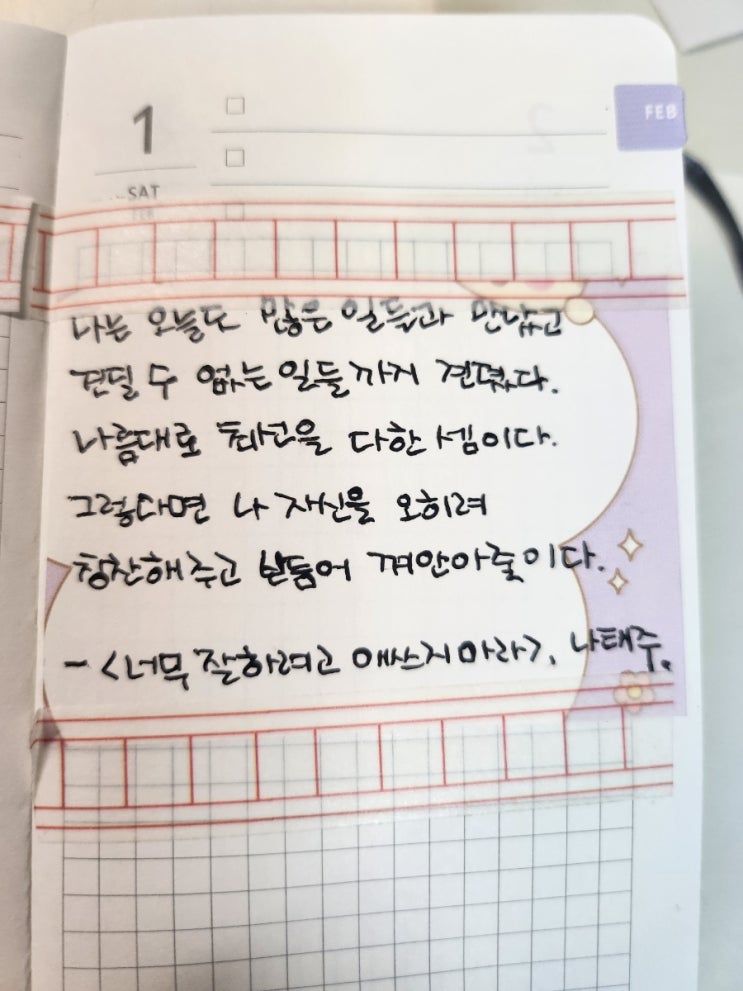 1
FEB
SAT
나는 오늘도 많은 일들과 만났고
견딜 수 없는 일들까지 견뎠다.
나름대로 최선을 다한 셈이다.
그렇다면 나 자신을 오히려
칭찬해주고 보듬어 껴안아줄 일이다.
- <너무 잘하려고 애쓰지 마라>, 나태주.